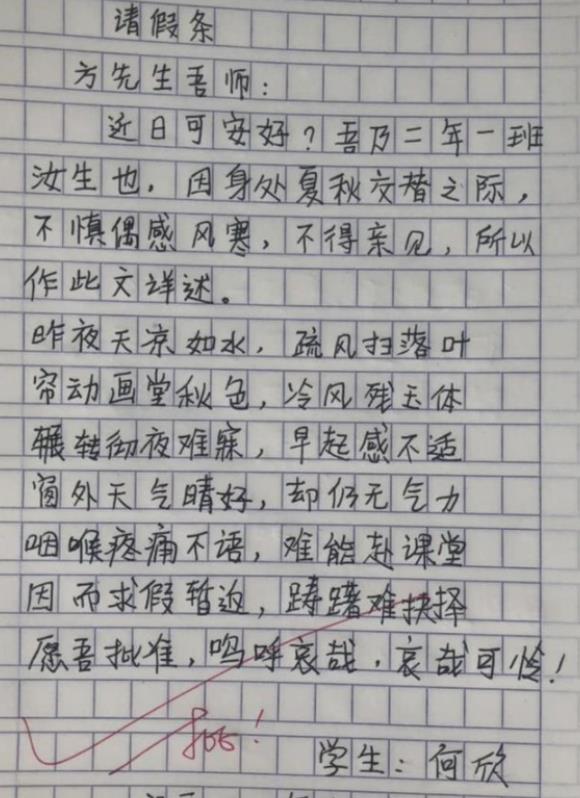 请假条
方先生吾师:
近日可安好?吾乃二年一班
汝生也,因身处夏秋交替之际,
不慎偶感风寒,不得亲见,所以
作此文详述。
昨夜天凉如水,疏风扫落叶
帘动画堂秋色,冷风残玉体
辗转彻夜难寐,早起感不适
窗外天气晴好,却仍无气力
咽喉疼痛不语,难能赴课堂
因而求假暂返,踌躇难抉择
愿吾批准,呜呼哀哉,哀哉可怜!
批!
学生:何欣